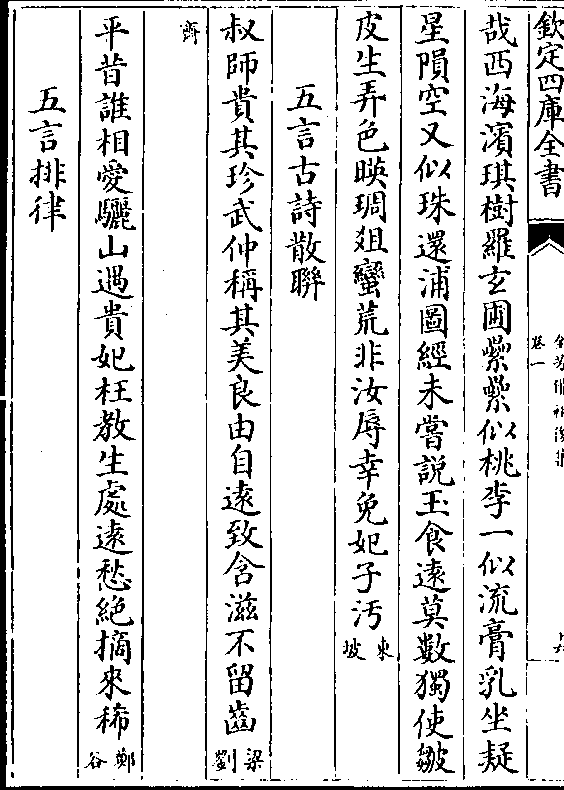 欽定四庫全書
卷一
哉西海濱琪樹羅玄圃纍纍似桃李一似流膏乳坐疑
星隕空又似珠還浦圖經未嘗說玉食遠莫數獨使皺
皮生弄色映琱俎蠻荒非汝辱幸免妃子汚東坡
五言古詩散聯
叔師貴其珍武仲稱其美良由自遠致含滋不留齒梁劉
齊
平昔誰相愛驪山遇貴妃枉教生處遠愁絕摘來稀鄭谷
五言排律